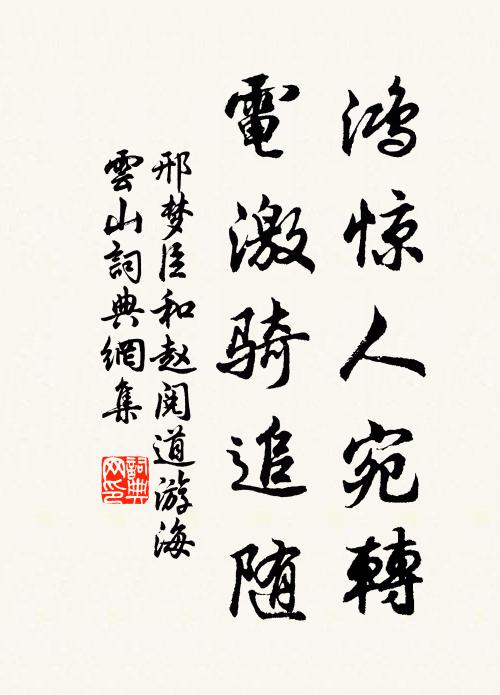 鸿惊人宛轉
電激骑追随
邢梦臣和赵阅道游海
雲山詞典網集
詞典
网印